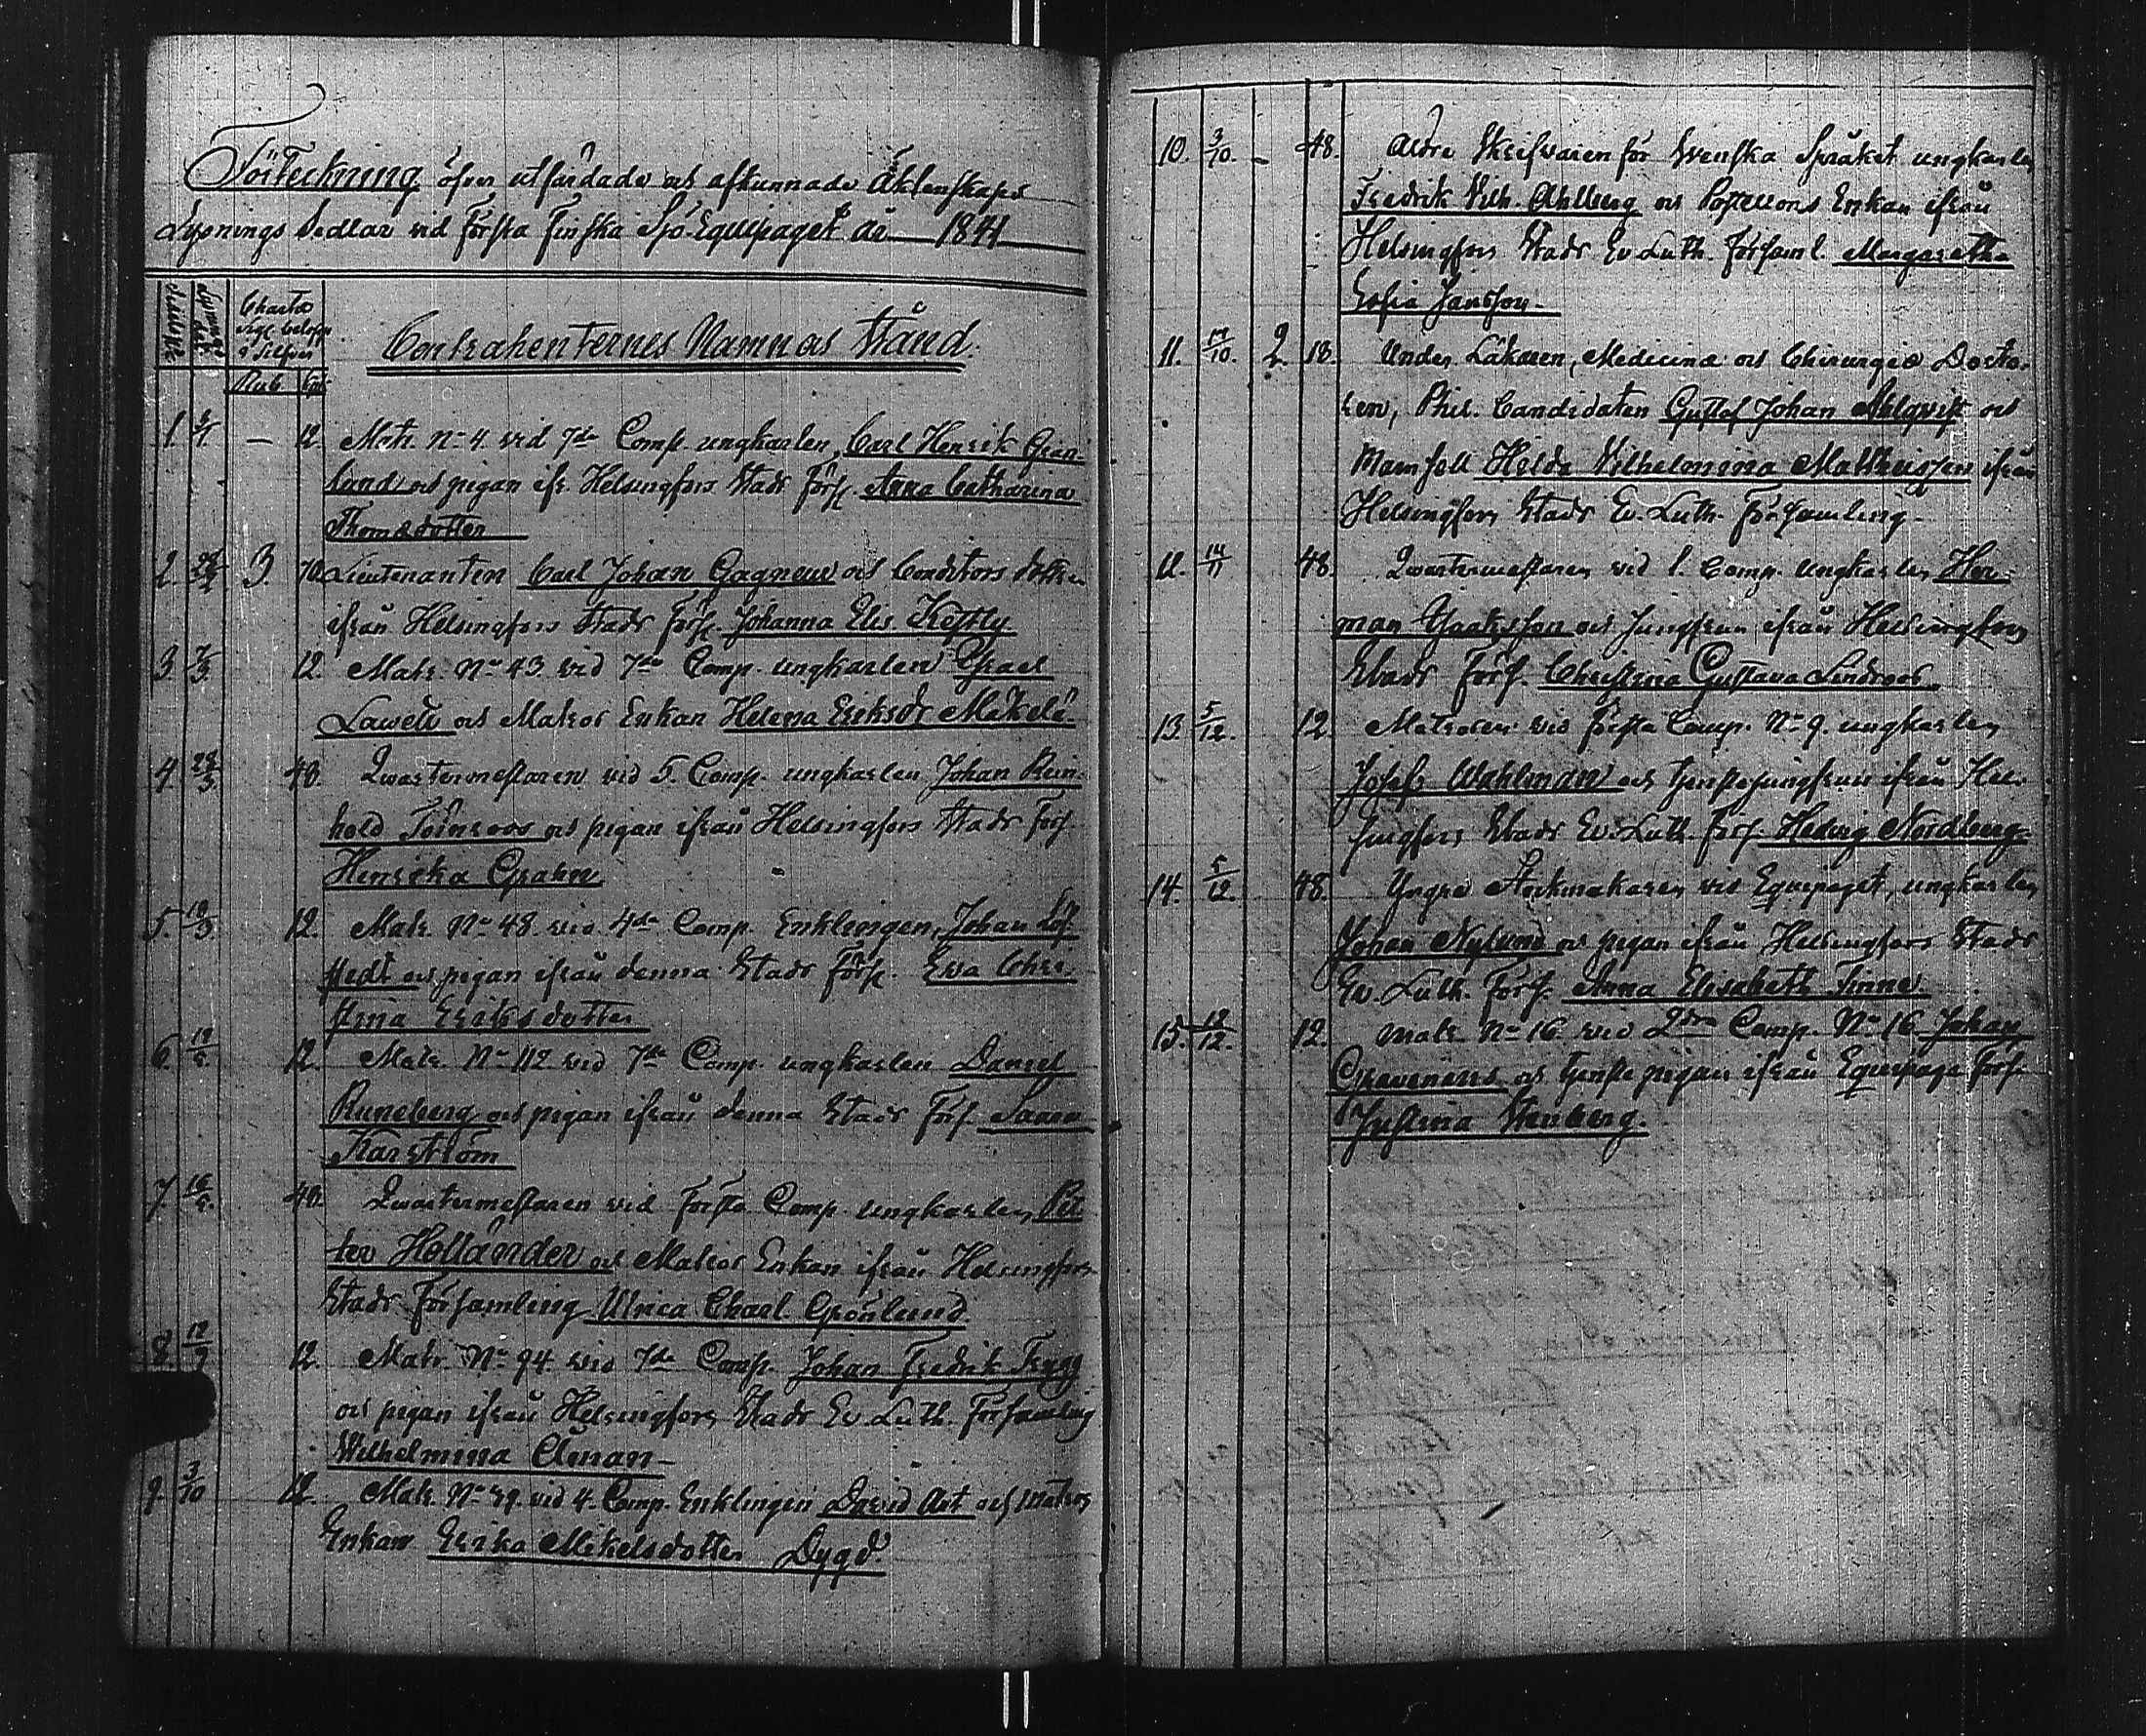 Förteckning öfver utfärdade och afkunnade Äktenskaps
Lysnings Sedlar vid Första Finska Sjö-Equipaget år 1841
Lysnings
Charta
Sigl. belopp
i Silfver
Contrahenternes Namn och Stånd.
Rub. Kop.
1. — 12. Matr. No 4. vid 7de Comp. ungkarlen, Carl Henrik Grön-
lund och pigan ifr. Helsingfors Stads Förs. Anna Catharina
Thomasdotter
2. 3. 70. Lieutenanten Carl Johan Gagneur och Conditors dotter
ifrån Helsingfors Stads Förs. Johanna Elis.
3. 12. Matr. No 43 vid 7de Comp. ungkarlen
och Matros Enkan Helena Eriksdr Mäkelä.
4. 28/3 48. Qvartermestaren vid 5. Comp. ungkarlen Johan Rein-
hold Törnroos och pigan ifrån Helsingfors Stads Förs.
Henricka Grahn
5. 12. Matr. No 48. vid 4de Comp. Enklingen, Johan Löf-
stedt och pigan ifrån denna Stads Förs. Eva Chri-
stina Eriksdotter
6. 12. Matr. No 112 vid 7de Comp. ungkarlen Daniel
Runeberg och pigan ifrån denna Stads Förs.
Karström
7. 48. Qvartermestaren vid Första Comp. ungkarlen Pet-
ter Holländer och Matros Enkan ifrån Helsingfors
Stads Församling Ulrica Charl. Grönlund.
8. 12/9 12. Matr. No 94 vid 7de Comp. Johan Fredrik Trygg
och pigan ifrån Helsingfors Stads Ev. Luth. Församling
Wilhelmina Öman
9. 3/10 12. Matr. No 29. vid 4. Comp. Enklingen David Ast och Matros
Enkan Erika Mikelsdotter Dygd.
10. 3/10. — 48. Äldre Skrifvaren för Svenska Språket ungkarlen
Fredrik Vilh. Ahlberg och Enkan ifrån
Helsingfors Stads Ev. Luth. Församl. Margaretha
Sofia Jansson
11. 17/10. 2. 18. Under Läkaren, Medicinæ och Chirurgiæ Docto-
ren, Phil. Candidaten Gustaf Johan Ahlqvist och
Mamsell Hilda Vilhelmina ifrån
Helsingfors Stads Ev. Luth. Församling
12. 14/11 48. Qvartermestaren vid 1. Comp. ungkarlen Her-
man Isaksson och Jungfrun ifrån Helsingfors
Stads Förs. Christina Gustava Lindroos.
13. 5/12. 12. Matrosen vid första Comp. No 9. ungkarlen
Josef Wahlman och tjenstejungfrun ifrån Hel-
singfors Stads Ev. Luth. förs. Hedvig Nordberg
14. 5/12 48. Yngre Stickmakaren vid Equipaget, ungkarlen
Johan Nylund och pigan ifrån Helsingfors Stads
Ev. Luth. Förs. Anna Elisabeth Finne.
15. 12/12. 12. Matr. No 16. vid 2dra Comp. No 16 Johan
Gravenius och tjenste pigan ifrån Equipage förs.
Justina Stenberg.